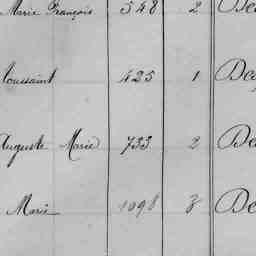 Marie François 548 2 De
Toussaint 425 1 De
Auguste Marie 733 2 De
Marie 1098 3 De